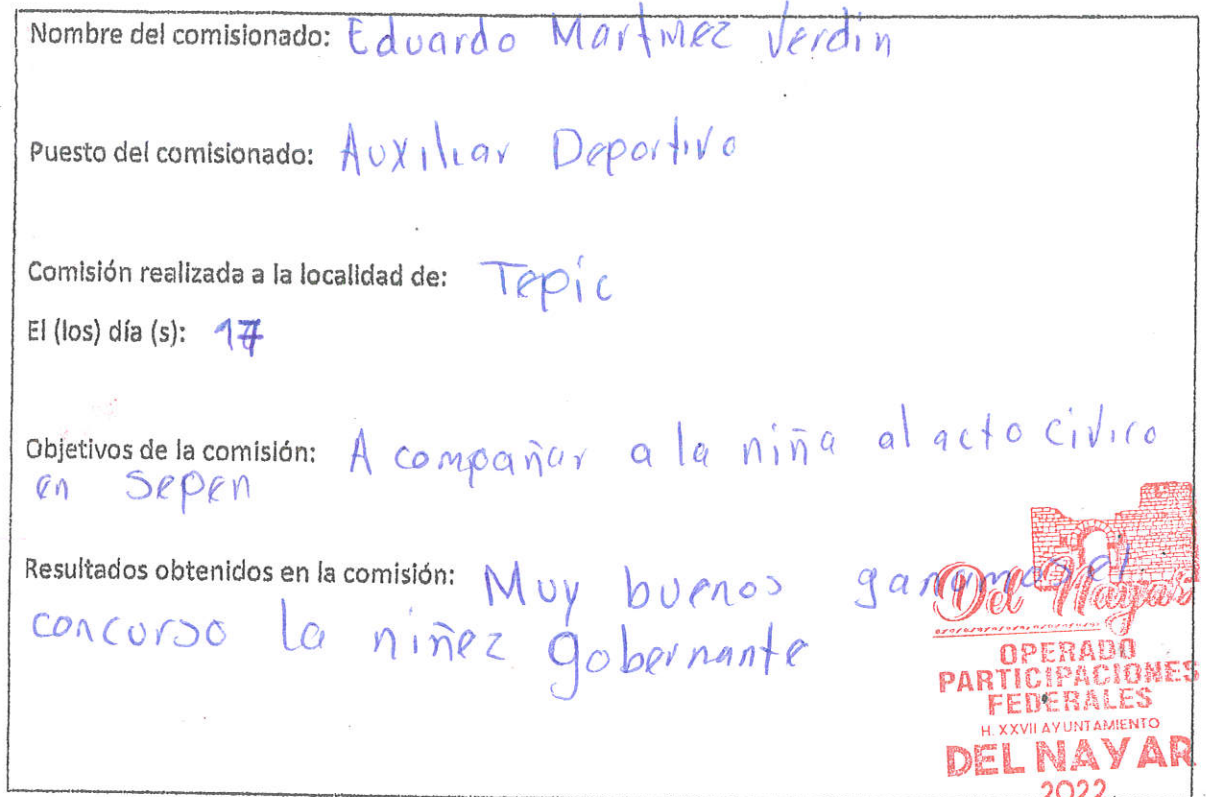 Nombre del comisionado: Eduardo Martinez Verdin
Puesto del comisionado: Auxiliar Deportivo
Comisión realizada a la localidad de: Tepic
El (los) día (s): 17
Objetivos de la comisión: Acompañar a la niña al acto civico
en Sepen
Resultados obtenidos en la comisión: Muy buenos ganamos el
concurso la niñez gobernante
Del Nayar
OPERADO
PARTICIPACIONES
FEDERALES
H. XXVII AYUNTAMIENTO
DEL NAYAR
2022